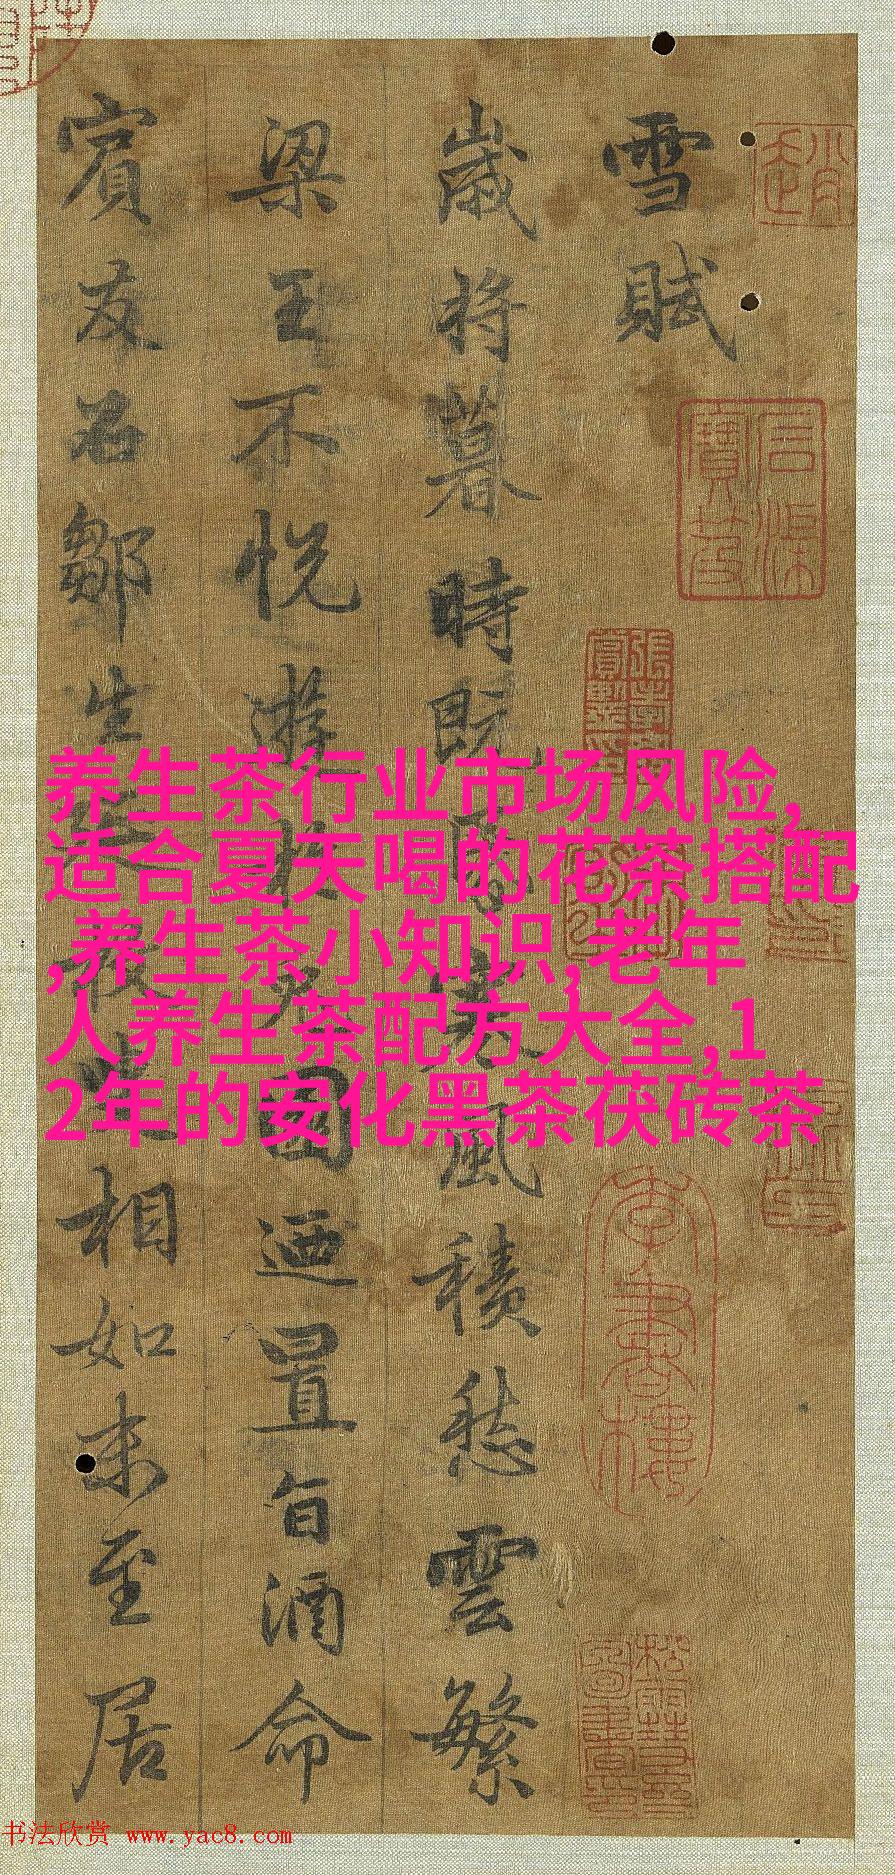 雪賦
歲将暮時既昏寒風積愁雲繁
梁王不悦遊於兔園迺置旨酒命
賓友召鄒生延枚叟相如末至居
养生茶行业市场风险,
适合夏天喝的花茶搭配
,养生茶小知识,老年
人养生茶配方大全,1
2年的安化黑茶茯砖茶
书法欣赏 www.yac8.com